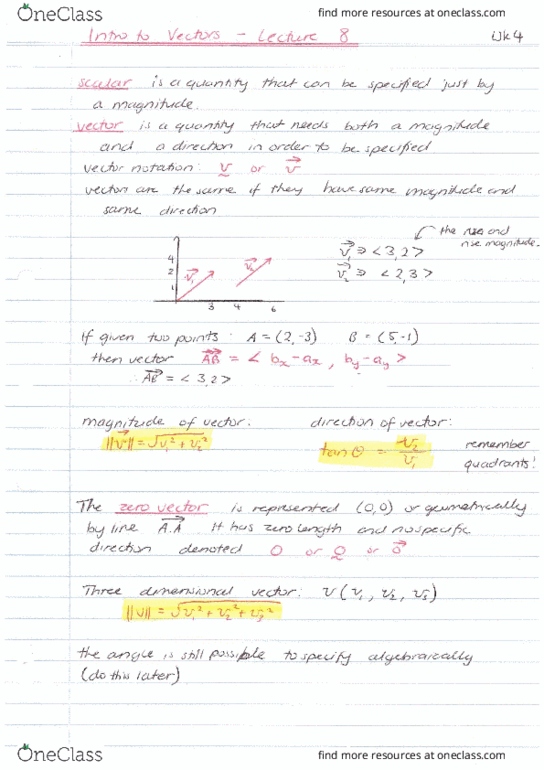 OneClass
find more resources at oneclass.com
Intro to Vectors - Lecture 8
Wk 4
scalar is a quantity that can be specified just by
a magnitude.
vector is a quantity that needs both a magnitude
and a direction in order to be specified
vector notation: v or v⃗
vector are the same if they have same magnitude and
same direction
the run and
rise magnitude.
v⃗₁ ⇒ < 3,2 >
v⃗₂ ⇒ < 2,3 >
4
2
1
v⃗₁
v⃗₂
3 4 6
If given two points: A = (2,-3) B = (5,-1)
then vector AB⃗ = < bx - ax, by - ay >
∴ AB⃗ = < 3,2 >
magnitude of vector: direction of vector:
||v⃗|| = √v₁² + v₂²
tan θ = v₂/v₁
remember
quadrants!
The zero vector is represented (0,0) or geometrically
by line A.A⃗ It has zero length and no specific
direction denoted O or O or o⃗
Three dimensional vector: v(v₁, v₂, v₃)
||v|| = √v₁² + v₂² + v₃²
the angle is still possible to specify algebraically
(do this later)
OneClass
find more resources at oneclass.com